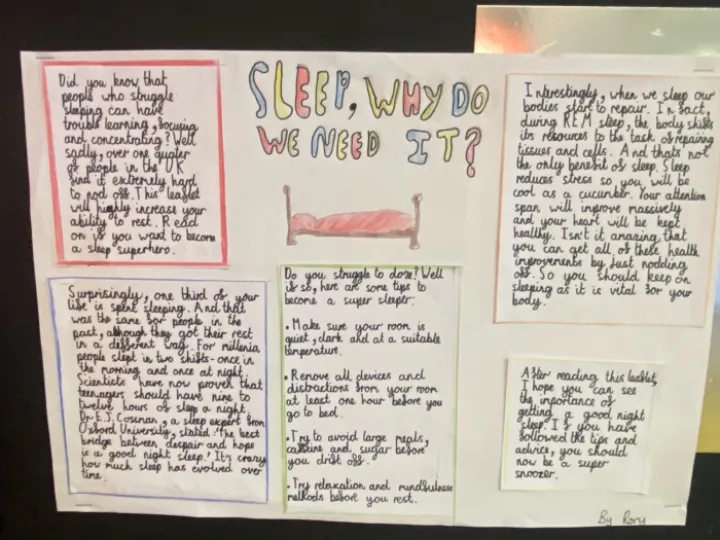 SLEEP, WHY DO
WE NEED IT?
Did you know that
people who struggle
sleeping can have
trouble learning, focusing
and concentrating? Well
sadly, over one quater
of people in the UK
find it extremely hard
to nod off. This leaflet
will highly increase your
ability to rest. Read
on if you want to become
a sleep superhero.
Surprisingly, one third of your
life is spent sleeping. And that
was the same for people in the
past, although they got their rest
in a different way. For millenia
people slept in two shifts - once in
the morning and once at night.
Scientists have now proven that
teenagers should have nine to
twelve hours of sleep a night.
Dr E.J. Cosman, a sleep expert from
Oxford University, stated 'The best
bridge between despair and hope
is a good night sleep.' It's crazy
how much sleep has evolved over
time.
Do you struggle to doze? Well
if so, here are some tips to
become a super sleeper:
• Make sure your room is
quiet, dark and at a suitable
temperature.
• Remove all devices and
distractions from your room
at least one hour before you
go to bed.
• Try to avoid large meals,
caffeine and sugar before
you drift off.
• Try relaxation and mindfulness
methods before you rest.
Interestingly, when we sleep our
bodies start to repair. In fact,
during R.E.M sleep, the body shifts
its resources to the task of repairing
tissues and cells. And thats not
the only benefit of sleep. Sleep
reduces stress so you will be
cool as a cucumber. Your attention
span will improve massively
and your heart will be kept
healthy. Isn't it amazing, that
you can get all of these health
improvements by just nodding
off. So you should keep on
sleeping as it is vital for your
body.
After reading this leaflet,
I hope you can see
the importance of
getting a good night
sleep. If you have
followed the tips and
advice, you should
now be a super
snoozer.
By Rory